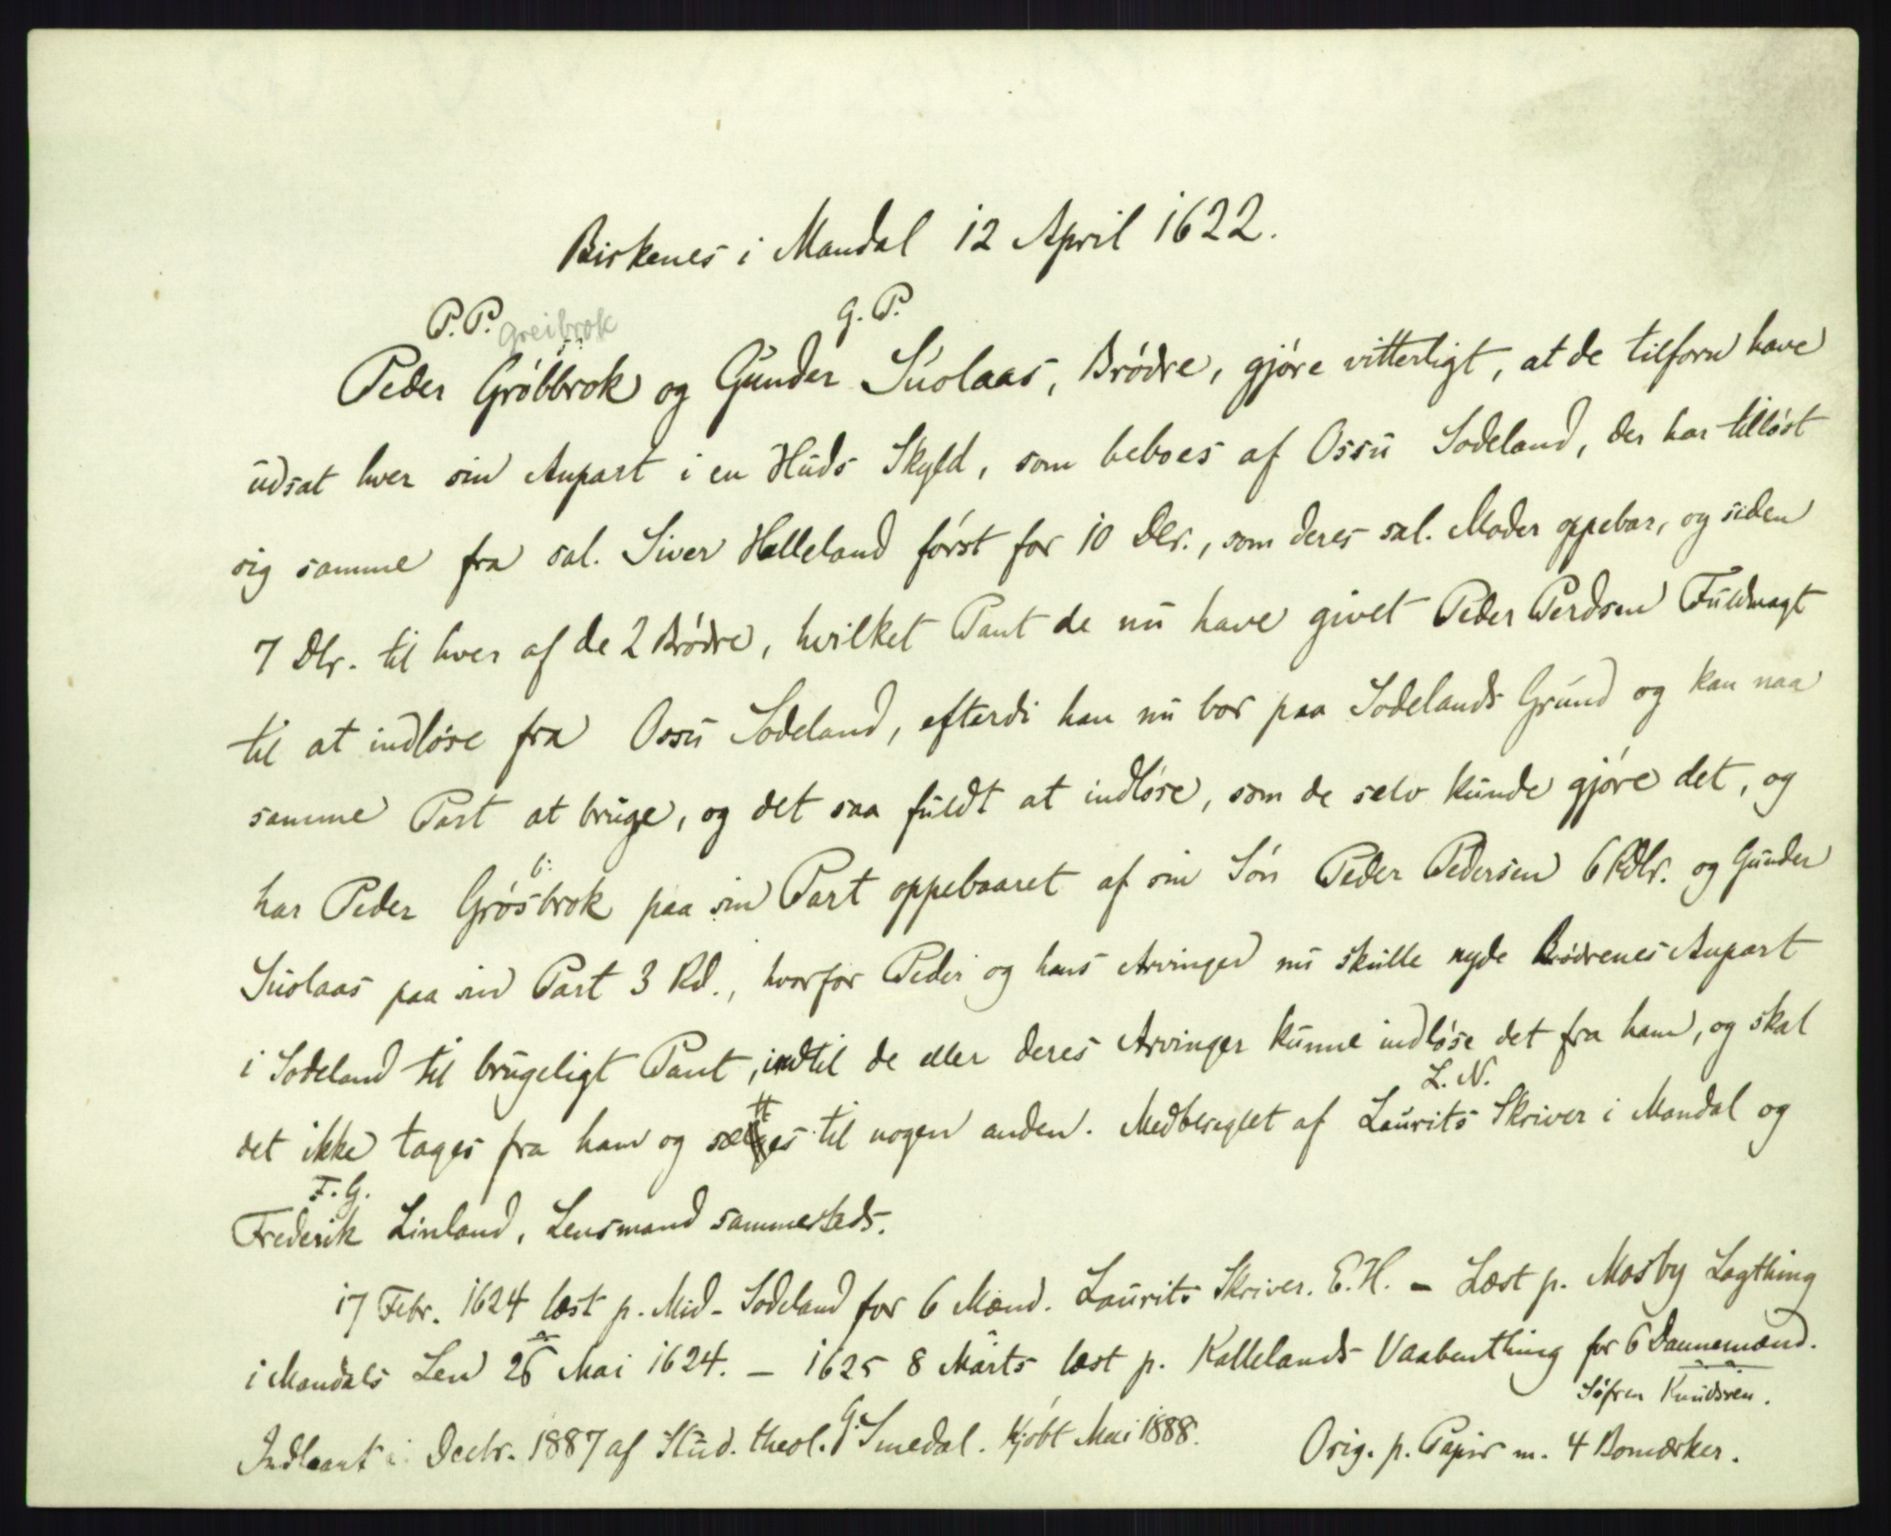 Birkenes i Mandal 12 April 1622.
P.P. Greibrok G.P.
Peder Gröbbrok og Gunder Suolaas, Brödre, gjöre vitterligt, at de tilforn have
udsat hver sin Anpart i en Huds Skyld, som beboes af Ossu Sodeland, der har tillöst
sig samme fra sal. Siver Helleland först for 10 Dlr., som deres sal. Moder oppebar, og siden
7 Dlr. til hver af de 2 Brödre, hvilket Pant de nu have givet Peder Perdsen Fuldmagt
til at indlöse fra Ossu Sodeland, efterdi han nu bor paa Sodelands Grund og kan naa
samme Part at bruge, og det saa fuldt at indlöse, som de selv kunde gjöre det, og
har Peder Grösbrok paa sin Part oppebaaret af sin Sön Peder Pedersen 6 Rdlr. og Gunder
Suolaas paa sin Part 3 Rd., hvorfor Peder og hans Arvinger nu skulle nyde Brödrenes Anpart
i Sodeland til brugeligt Pant, indtil de eller deres Arvinger kunne indlöse det fra ham, og skal
L. N.
det ikke tages fra ham og sættes til nogen anden. Medbeseglet af Laurits Skriver i Mandal og
F. G.
Frederik Linland, Lensmand sammesteds.
17 Febr. 1624 læst p. Mid-Sodeland for 6 Mænd. Laurits Skriver. E.H. – Læst p. Mosby Lagthing
i Mandals Len 26 Mai 1624. – 1625 8 Märts læst p. Kallelands Vaabenthing for 6 Dannemænd.
Söfren Knudssen.
Indlaant i Decbr. 1887 af Stud. theol. G. Smedal. Kjöbt Mai 1888.
Orig. p. Papir m. 4 Bomærker.